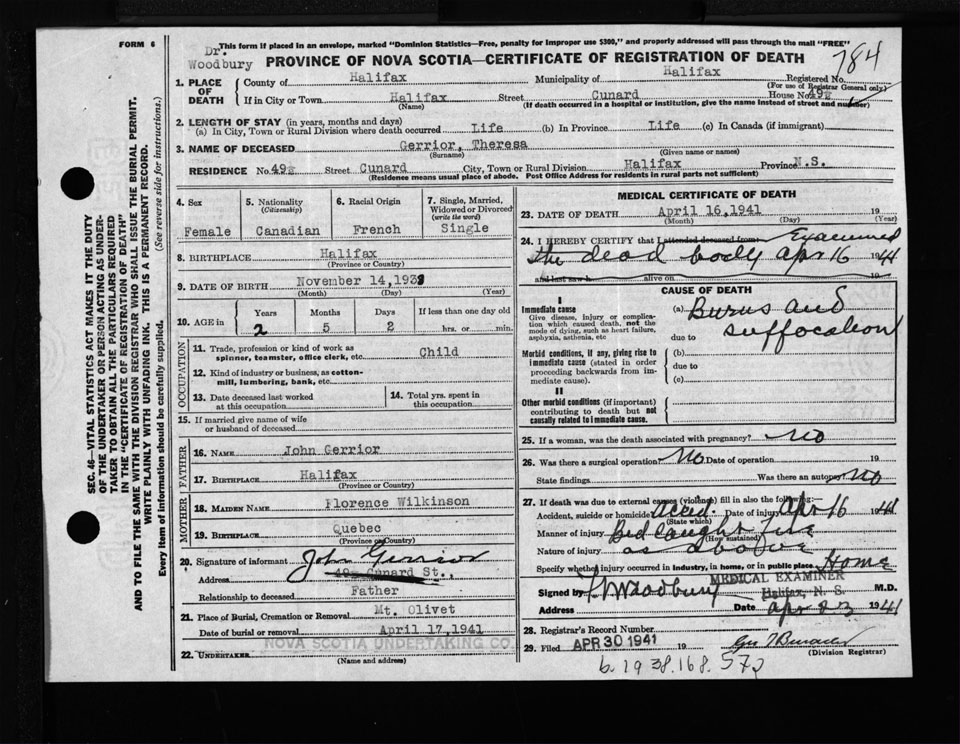 FORM 6
This form if placed in an envelope, marked "Dominion Statistics—Free, penalty for improper use $300," and properly addressed will pass through the mail "FREE"
Dr. Woodbury
PROVINCE OF NOVA SCOTIA—CERTIFICATE OF REGISTRATION OF DEATH
784
1. PLACE OF DEATH
County of Halifax Municipality of Halifax Registered No.
(For use of Registrar General only)
If in City or Town Halifax Street Cunard House No. 49½
(Name) (If death occurred in a hospital or institution, give the name instead of street and number)
2. LENGTH OF STAY (in years, months and days)
(a) In City, Town or Rural Division where death occurred Life (b) In Province Life (c) In Canada (if immigrant)
3. NAME OF DECEASED Gerrior, Theresa
(Surname) (Given name or names)
RESIDENCE No. 49½ Street Cunard City, Town or Rural Division Halifax Province N.S.
(Residence means usual place of abode. Post Office Address for residents in rural parts not sufficient)
4. Sex
Female
5. Nationality
(Citizenship)
Canadian
6. Racial Origin
French
7. Single, Married, Widowed or Divorced
(write the word)
Single
8. BIRTHPLACE Halifax
(Province or Country)
9. DATE OF BIRTH November 14, 1938
(Month) (Day) (Year)
10. AGE in
Years Months Days If less than one day old
2 5 2 hrs. or min.
OCCUPATION
11. Trade, profession or kind of work as spinner, teamster, office clerk, etc. Child
12. Kind of industry or business, as cotton-mill, lumbering, bank, etc.
13. Date deceased last worked at this occupation
14. Total yrs. spent in this occupation
15. If married give name of wife or husband of deceased
FATHER
16. NAME John Gerrior
17. BIRTHPLACE Halifax
(Province or Country)
MOTHER
18. MAIDEN NAME Florence Wilkinson
19. BIRTHPLACE Quebec
(Province or Country)
20. Signature of informant John Gerrior
Address 49½ Cunard St.,
Relationship to deceased Father
21. Place of Burial, Cremation or Removal Mt. Olivet
Date of burial or removal April 17, 1941
22. UNDERTAKER NOVA SCOTIA UNDERTAKING CO.
(Name and address)
MEDICAL CERTIFICATE OF DEATH
23. DATE OF DEATH April 16, 1941 19
(Month) (Day) (Year)
24. I HEREBY CERTIFY that I attended deceased from Examined
the dead body Apr 16 1941
and last saw h alive on 19
CAUSE OF DEATH
I
Immediate cause
Give disease, injury or complication which caused death, not the mode of dying, such as heart failure, asphyxia, asthenia, etc
(a) Burns and
suffocation
due to
Morbid conditions, if any, giving rise to immediate cause (stated in order proceeding backwards from immediate cause).
(b)
due to
(c)
II
Other morbid conditions (if important) contributing to death but not causally related to immediate cause.
25. If a woman, was the death associated with pregnancy? No
26. Was there a surgical operation? No Date of operation 19
State findings Was there an autopsy? No
27. If death was due to external causes (violence) fill in also the following:—
Accident, suicide or homicide? Accid. Date of injury Apr 16 1941
(State which)
Manner of injury Bed caught fire
(How sustained)
Nature of injury as above
Specify whether injury occurred in industry, in home, or in public place Home
Signed by Woodbury M.D.
MEDICAL EXAMINER
Halifax, N. S.
Address Date Apr 23 1941
28. Registrar's Record Number
29. Filed APR 30 1941 19
(Division Registrar)
b. 1938.168.572
SEC. 46—VITAL STATISTICS ACT MAKES IT THE DUTY
OF THE UNDERTAKER OR PERSON ACTING AS UNDER-
TAKER TO OBTAIN ALL THE PARTICULARS REQUIRED
IN THE "CERTIFICATE OF REGISTRATION OF DEATH"
AND TO FILE THE SAME WITH THE DIVISION REGISTRAR WHO SHALL ISSUE THE BURIAL PERMIT.
WRITE PLAINLY WITH UNFADING INK. THIS IS A PERMANENT RECORD.
Every item of information should be carefully supplied. (See reverse side for instructions.)